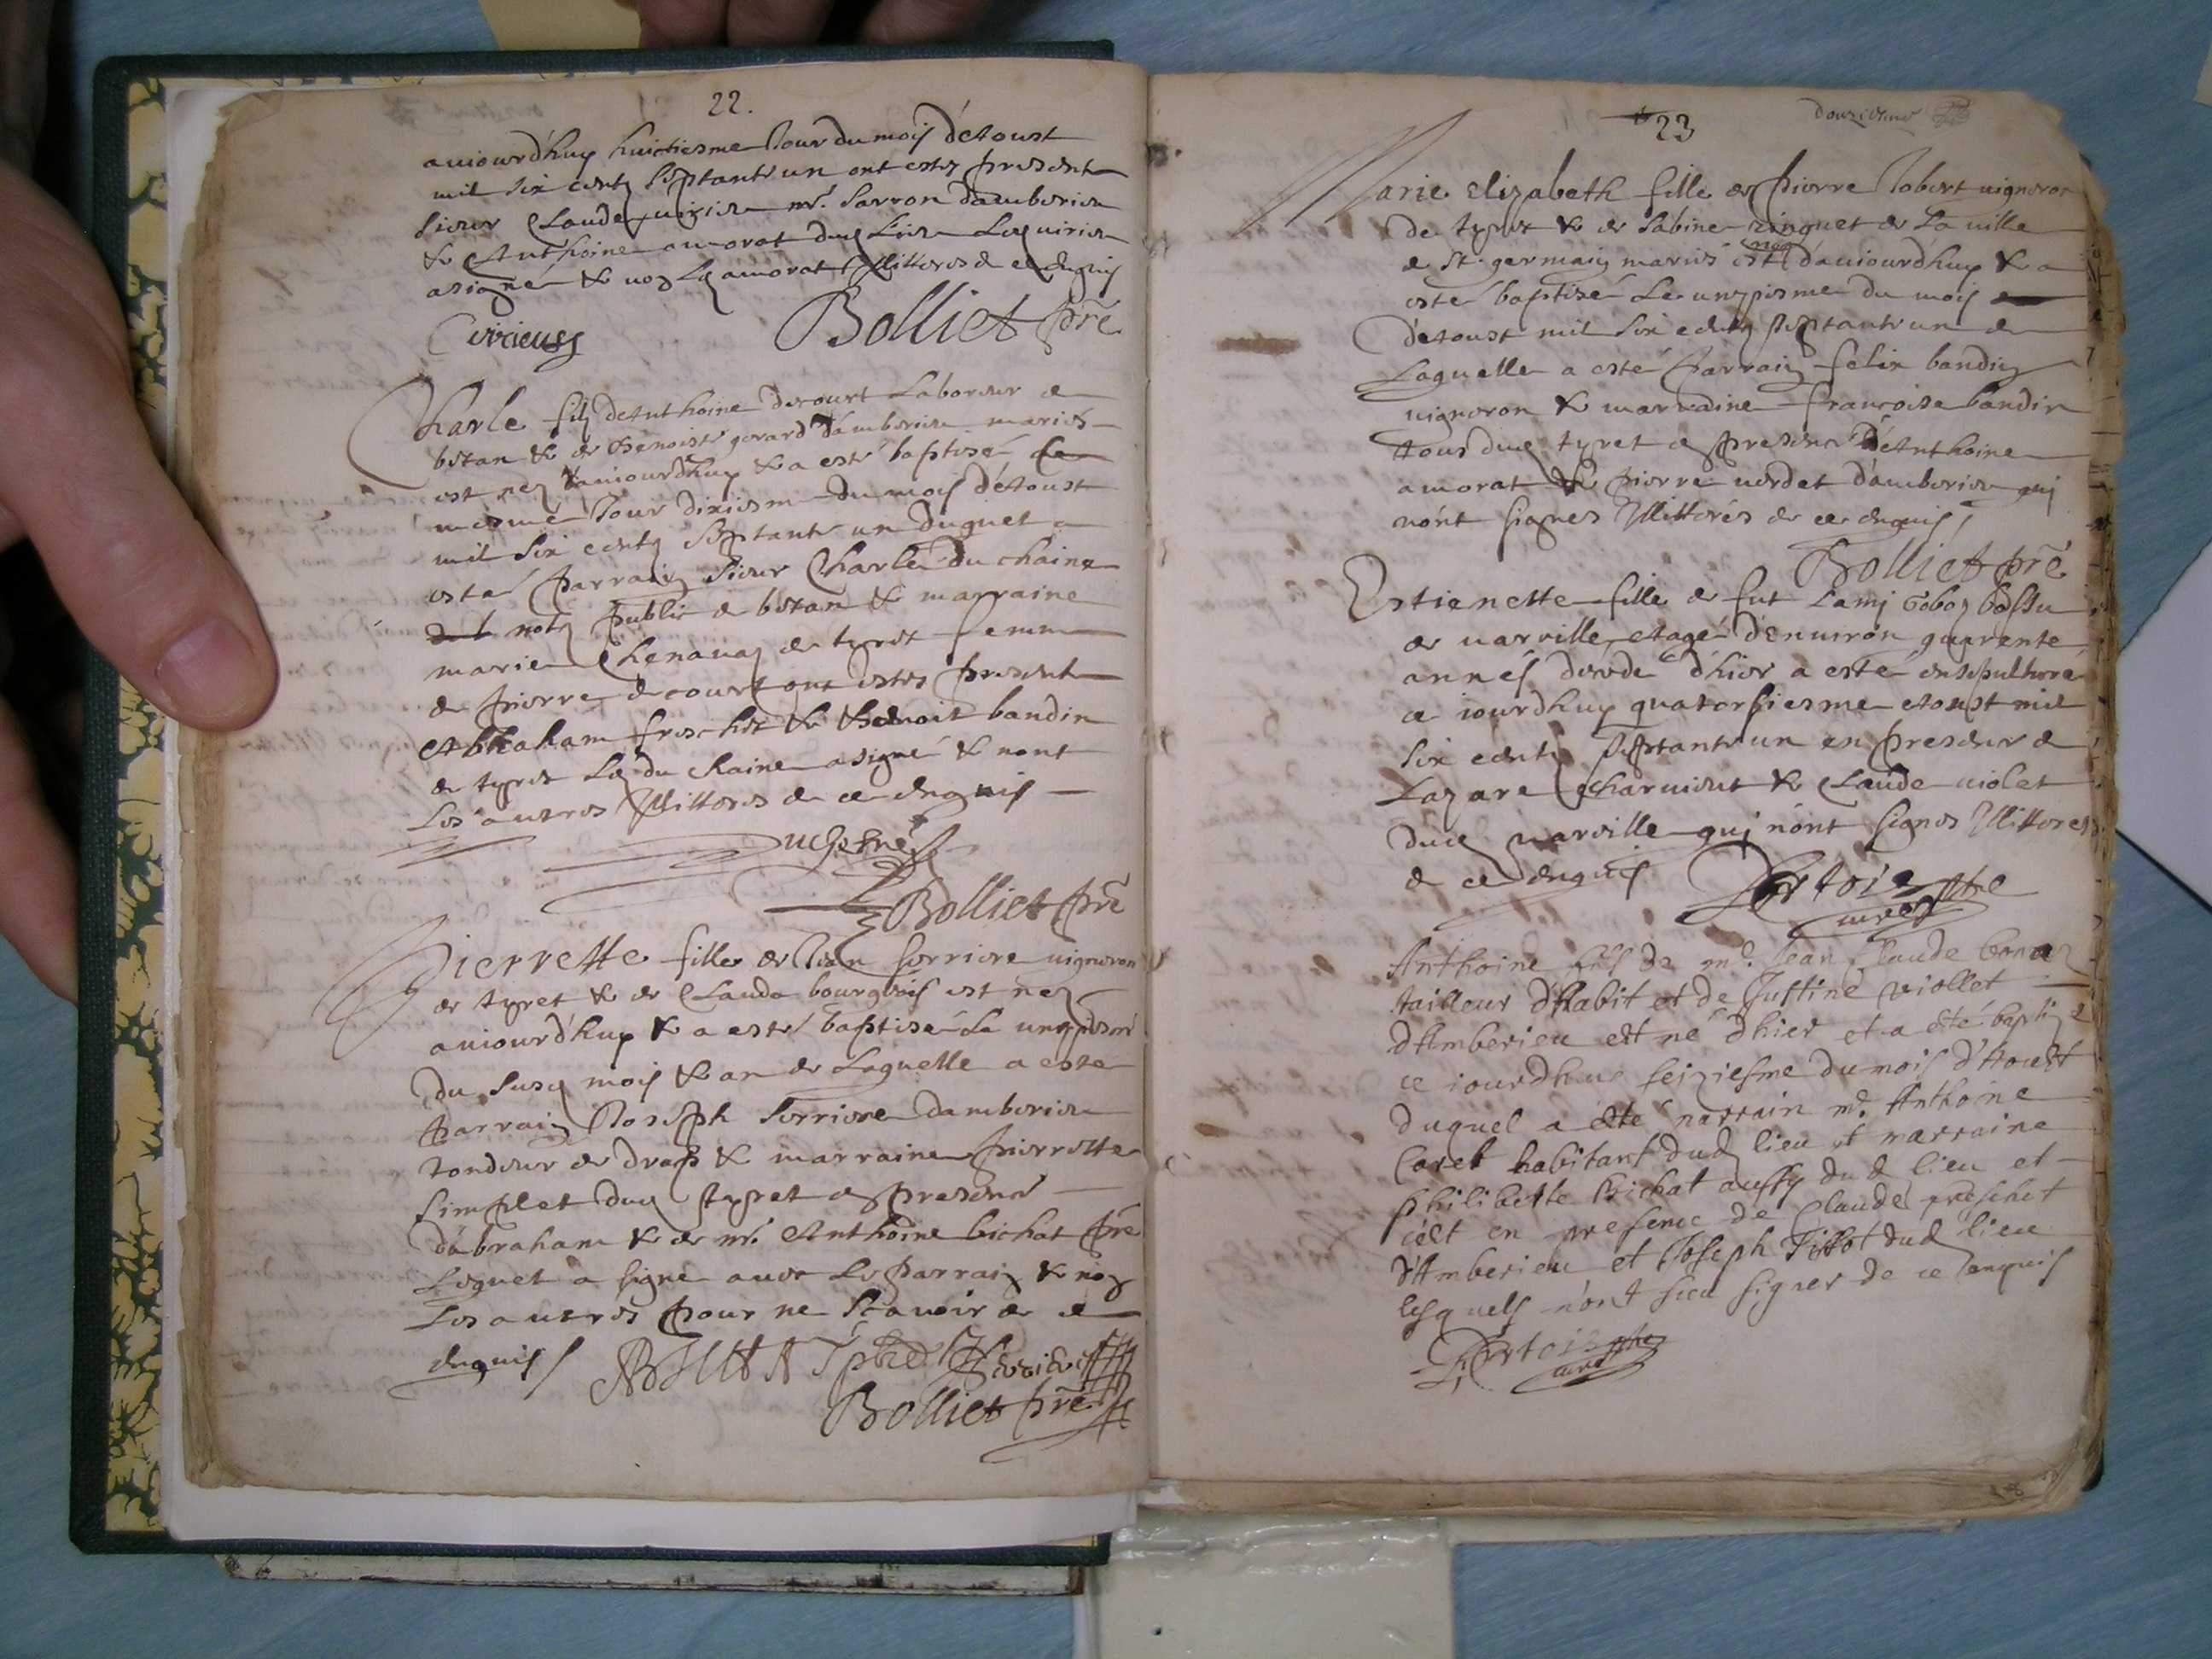 22.
auiourdhuy huictiesme Jour du mois d'Aoust
mil six centz septante un ont estez present
sieur Claude me. Sarron damberieu
& Anthoine amorat dud Lieu
a signé & non Led amorat Illitteres de ce enquis
Bolliet pre
Charle filz de Anthoine decourt Laboreur de
betan & de Benoiste gerard d'amberieu mariés
est nez d'auiourdhuy & a esté baptisé le
mesme Jour dixiesme du mois d'Aoust
mil six centz septante un duquel a
esté parrain sieur Charle Du chaine
notre public de betan & marraine
marie Chenauaz de tyret femme
de pierre decourt ont estez present
Abraham freschet & Benoit bandin
de tyret Led du chaine a signé & nont
Les autres Illitteres de ce enquis
Duchesne
Bolliet pre
Pierrette fille de Jean serriere uigneron
de tyret & de Claude bourgeois est nez
auiourd'huy & a esté baptisé Le unziesme
du susd mois & an de Laquelle a esté
parrain Joseph serriere damberieu
tondeur de drap & marraine pierrette
simplet dud tyret es presence
d'abraham & de mre Anthoine bichat pre
Lequel a signé auec Le parrain & non
Les autres pour ne scauoir de ce
enquis
Bolliet pre
23
douziesme
Marie Elizabeth fille de pierre Jobert uigneron
de tyret & de Sabine ringuet de La uille
de St. germain mariés est nee d'auiourd'huy & a
esté baptisé Le unziesme du mois
d'Aoust mil six centz septante un de
Laquelle a esté parrain felix bandin
uigneron & marraine francoise bandin
tous dud tyret es presence d'Anthoine
amorat & pierre uerdet d'amberieu qui
nont signes Illitterés de ce enquis
Bolliet pre
Estienette fille de fut Lami bossu
de uaruille Aagé d'enuiron quarente
annés decede d'hier a esté ensepulturé
ce iourdhuy quatorsiesme Aoust mil
six centz septante un en presence de
Lazare charuieut & Claude uiolet
dud uaruille qui nont signes Illitteres
de ce enquis
pbre
curé
Anthoine fils de me. Jean Claude bonaz
tailleur d'habit et de Justine viollet
d'Amberieu est né d'hier et a esté baptizé
ce iourdhuy seiziesme du mois d'Aoust
duquel a esté parrain me. Anthoine
Caret habitant dud lieu et marraine
philiberte Bichat aussy dud lieu et
cest en presence de Claude freschet
d'Amberieu et Joseph Tissot dud lieu
lesquels n'ont sceu signer de ce enquis
curé